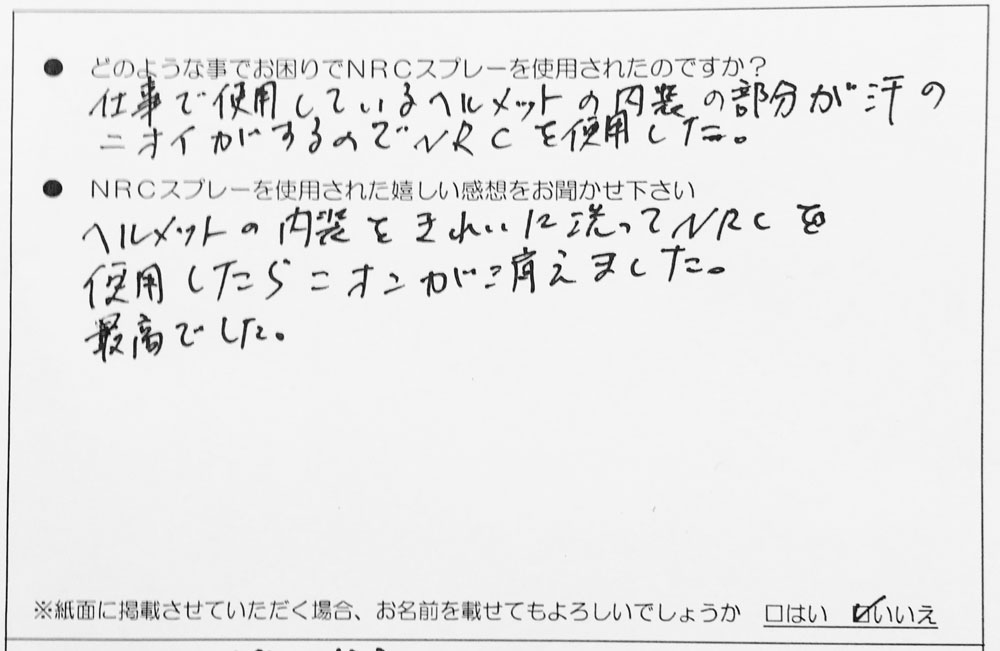 ● どのような事でお困りでNRCスプレーを使用されたのですか?
仕事で使用しているヘルメットの内装の部分が汗の
ニオイがするのでNRCを使用した。
● NRCスプレーを使用された嬉しい感想をお聞かせ下さい
ヘルメットの内装をきれいに洗ってNRCを
使用したらニオンが消えました。
最高でした。
※紙面に掲載させていただく場合、お名前を載せてもよろしいでしょうか □はい ☑いいえ